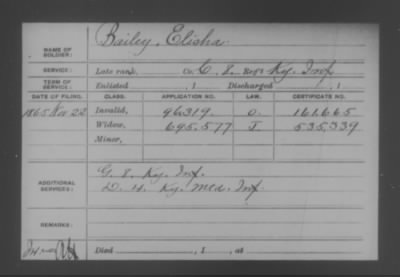 Bailey, Elisha
NAME OF SOLDIER:
SERVICE: Late rank, Co. C. 8. Reg't Ky. Inf.
TERM OF SERVICE: Enlisted , 1 Discharged , 1
DATE OF FILING. CLASS. APPLICATION NO. LAW. CERTIFICATE NO.
1865 Nov 22 Invalid, 96319 O. 161.665
Widow, 695.577 J. 535,339
Minor,
ADDITIONAL SERVICES: G. 8. Ky. Inf.
D. 4. Ky. Mtd. Inf.
REMARKS:
Died , 1 , at